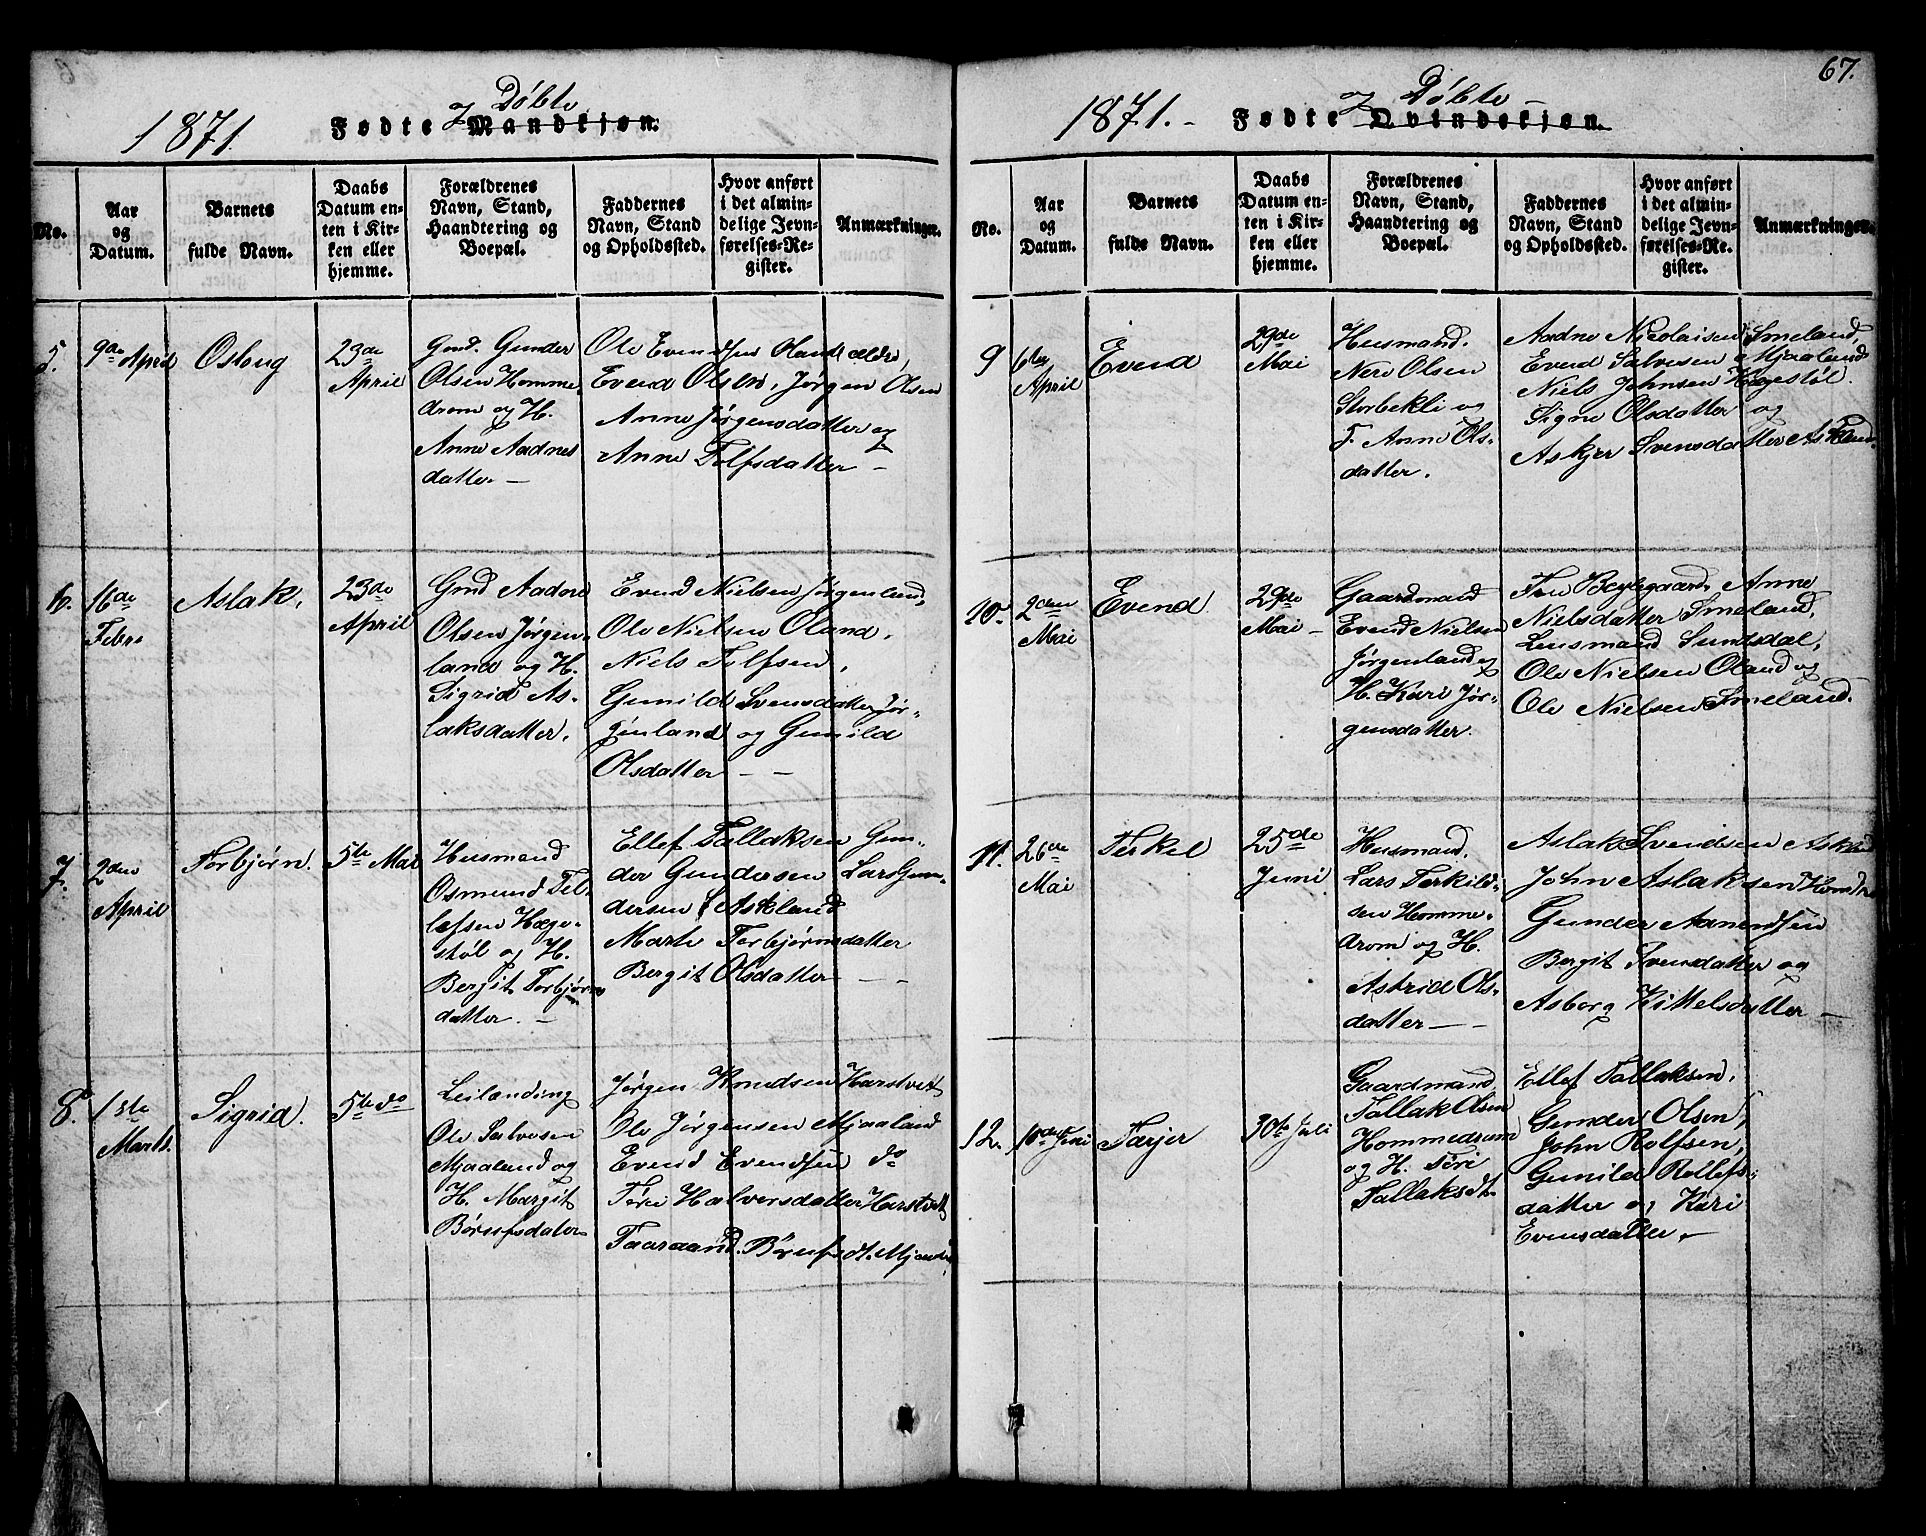 1871 Fødte og Døbte Mandkjøn.
No.
Aar og Datum.
Barnets fulde Navn.
Daabs Datum enten i Kirken eller hjemme.
Forældrenes Navn, Stand, Haandtering og Boepæl.
Faddernes Navn, Stand og Opholdssted.
Hvor anført i det almindelige Jevnførelses-Register.
Anmærkninger.
5.
9de April
Oslaug
23de
April
Gmd. Gunder
Olsen Homme-
drom og H.
Anne Aadnes
datter. —
Ole Evendsen Oland ældre,
Evend Olsen, Jørgen Olsen
Anne Jørgensdatter og
Anne Tolfsdatter —
6.
16de
Febr.
Aslak,
23de
April
Gmd Aadne
Olsen Jørgen-
land og H.
Sigrid As-
laksdatter.
Evend Nielsen Jørgenland,
Ole Nielsen Oland,
Niels Tolfsen,
Gunild Svensdatter Jør-
genland og Gunild
Olsdatter — —
7.
2den
April
Torbjørn.
5te Mai
Husmand
Osmund Tel-
lefsen Hæge-
støl og H.
Bergit Torbjørns
datter. —
Ellef Tallaksen Gun-
der Gundersen Lars Gun-
dersen Askland
Marte Torbjørnsdatter
Bergit Olsdatter — —
8.
1ste
Marts.
Sigrid.
5te do
Leilænding
Ole Salvesen
Mjaaland og
H. Margit
Børufsdater
Jørgen Knudsen Harstvet
Ole Jørgensen Mjaaland
Evend Evendsen do
Tore Halversdatter Harstvet
Taaraand. Børufsdt. Mjaaland
67.
1871. - Fødte og Døbte Qvindekjøn.
No.
Aar og Datum.
Barnets fulde Navn.
Daabs Datum enten i Kirken eller hjemme.
Forældrenes Navn, Stand, Haandtering og Boepæl.
Faddernes Navn, Stand og Opholdssted.
Hvor anført i det almindelige Jevnførelses-Register.
Anmærkninger.
9
6te
April
Evend
29de
Mai
Husmand.
Neri Olsen
Storbekli og
T. Anne Ols-
datter.
Aadne Nicolaisen Smeland,
Evend Salvesen Mjaaland
Niels Johnsen Hægestøl.
Signe Olsdatter og
Askjer Svensdatter Askland
10.
2den
Mai
Evend.
29de
Mai —
Gaardmand
Evend Nielsen
Jørgenland og
H. Kari Jør-
gensdatter.
Fru Beylegaard, Anne
Nielsdatter Smeland,
Lensmand Sundsdal,
Ole Nielsen Oland og
Ole Nielsen Smeland.
11.
26de
Mai
Terkel
25de
Juni
Husmand.
Lars Terkild-
sen Homme-
drom og H.
Astrid Ols-
datter — —
Aslak Svendsen Askland
John Aslaksen
Gunder Aanendsen
Bergit Svensdatter og
Asborg Kittelsdatter —
12.
10de Juni
Tarjer
30te Juli
Gaardmand
Tallak Olsen
Hommedrum
og H. Tori
Tallaksdt.
Ellef Tallaksen,
Gunder Olsen,
John Rolfsen,
Gunild Rollefs-
datter og Kari
Evensdatter. —